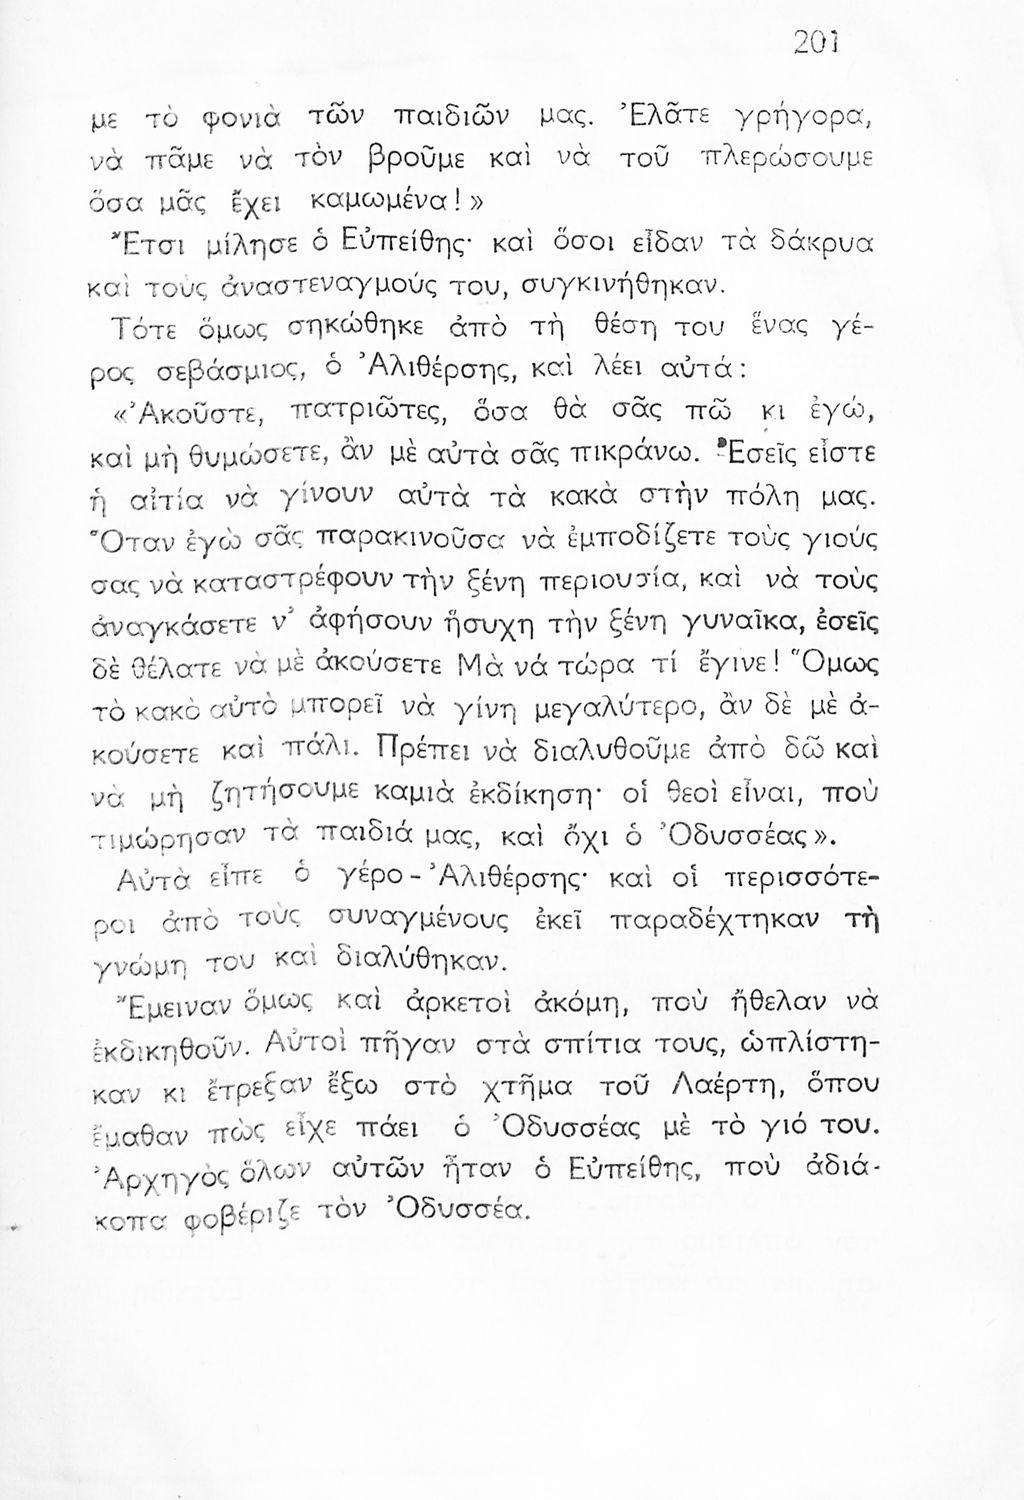 201
με τὸ φονιὰ τῶν παιδιῶν μας. Ἐλᾶτε γρήγορα,
νὰ πᾶμε νὰ τὸν βροῦμε καὶ νὰ τοῦ πλερώσουμε
ὅσα μᾶς ἔχει καμωμένα! »
Ἔτσι μίλησε ὁ Εὐπείθης· καὶ ὅσοι εἶδαν τὰ δάκρυα
καὶ τοὺς ἀναστεναγμούς του, συγκινήθηκαν.
Τότε ὅμως σηκώθηκε ἀπὸ τὴ θέση του ἕνας γέ-
ρος σεβάσμιος, ὁ Ἀλιθέρσης, καὶ λέει αὐτά:
«Ἀκοῦστε, πατριῶτες, ὅσα θὰ σᾶς πῶ κι ἐγώ,
καὶ μὴ θυμώσετε, ἂν μὲ αὐτὰ σᾶς πικράνω. Ἐσεῖς εἶστε
ἡ αἰτία νὰ γίνουν αὐτὰ τὰ κακὰ στὴν πόλη μας.
Ὅταν ἐγὼ σᾶς παρακινοῦσα νὰ ἐμποδίζετε τοὺς γιούς
σας νὰ καταστρέφουν τὴν ξένη περιουσία, καὶ νὰ τοὺς
ἀναγκάσετε ν᾽ ἀφήσουν ἥσυχη τὴν ξένη γυναῖκα, ἐσεῖς
δὲ θέλατε νὰ μὲ ἀκούσετε Μὰ νά τώρα τί ἔγινε! Ὅμως
τὸ κακὸ αὐτὸ μπορεῖ νὰ γίνη μεγαλύτερο, ἂν δὲ μὲ ἀ-
κούσετε καὶ πάλι. Πρέπει νὰ διαλυθοῦμε ἀπὸ δῶ καὶ
νὰ μὴ ζητήσουμε καμιὰ ἐκδίκηση· οἱ θεοὶ εἶναι, ποὺ
τιμώρησαν τὰ παιδιά μας, καὶ ὄχι ὁ Ὀδυσσέας».
Αὐτὰ εἶπε ὁ γέρο - Ἀλιθέρσης· καὶ οἱ περισσότε-
ροι ἀπὸ τοὺς συναγμένους ἐκεῖ παραδέχτηκαν τὴ
γνώμη του καὶ διαλύθηκαν.
Ἔμειναν ὅμως καὶ ἀρκετοὶ ἀκόμη, ποὺ ἤθελαν νὰ
ἐκδικηθοῦν. Αὐτοὶ πῆγαν στὰ σπίτια τους, ὡπλίστη-
καν κι ἔτρεξαν ἔξω στὸ χτῆμα τοῦ Λαέρτη, ὅπου
ἔμαθαν πὼς εἶχε πάει ὁ Ὀδυσσέας μὲ τὸ γιό του.
Ἀρχηγὸς ὅλων αὐτῶν ἦταν ὁ Εὐπείθης, ποὺ ἀδιά-
κοπα φοβέριζε τὸν Ὀδυσσέα.